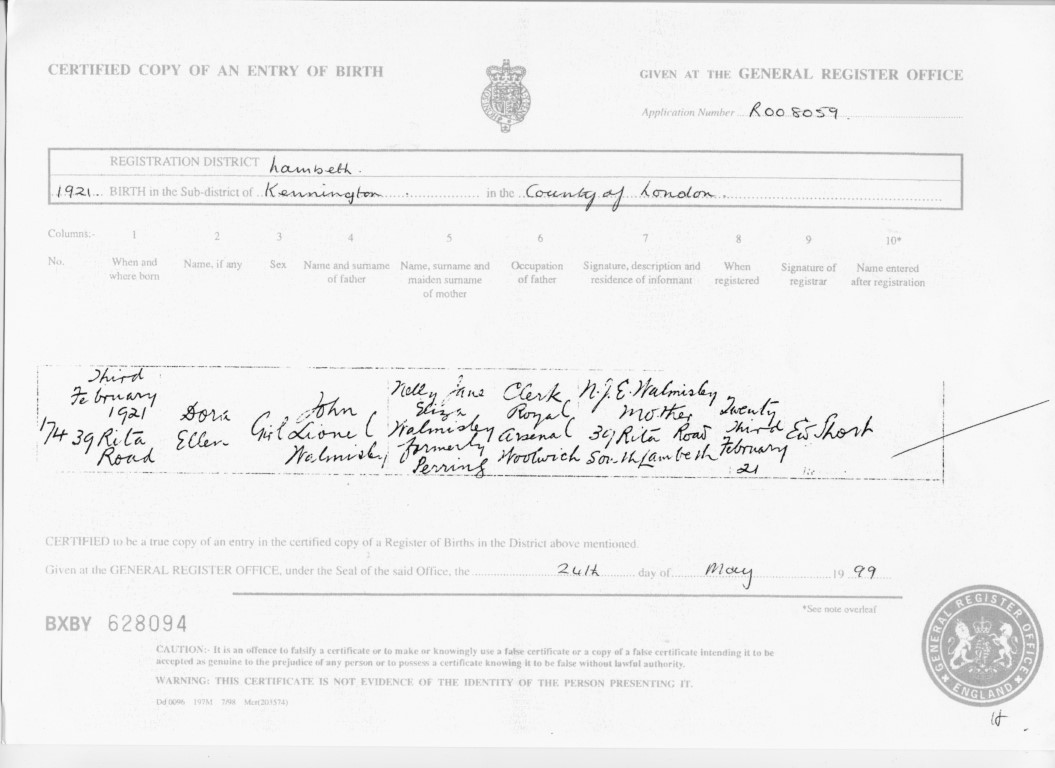 CERTIFIED COPY OF AN ENTRY OF BIRTH
GIVEN AT THE GENERAL REGISTER OFFICE
Application Number R008059
REGISTRATION DISTRICT Lambeth.
1921. BIRTH in the Sub-district of Kennington in the County of London.
Columns:- 1 2 3 4 5 6 7 8 9 10*
No. When and where born Name, if any Sex Name and surname of father Name, surname and maiden surname of mother Occupation of father Signature, description and residence of informant When registered Signature of registrar Name entered after registration
174
Third
February
1921
39 Rita
Road
Dora
Ellen
Girl
John
Lionel
Walmisley
Nelly Jane
Eliza
Walmisley
formerly
Perring
Clerk
Royal
Arsenal
Woolwich
N.J.E. Walmisley
Mother
39 Rita Road
South Lambeth
Twenty
Third
February
21
Ew Short
CERTIFIED to be a true copy of an entry in the certified copy of a Register of Births in the District above mentioned.
Given at the GENERAL REGISTER OFFICE, under the Seal of the said Office, the 24th day of May 19 99
*See note overleaf
BXBY 628094
CAUTION:- It is an offence to falsify a certificate or to make or knowingly use a false certificate or a copy of a false certificate intending it to be
accepted as genuine to the prejudice of any person or to possess a certificate knowing it to be false without lawful authority.
WARNING: THIS CERTIFICATE IS NOT EVIDENCE OF THE IDENTITY OF THE PERSON PRESENTING IT.
GENERAL REGISTER OFFICE
ENGLAND